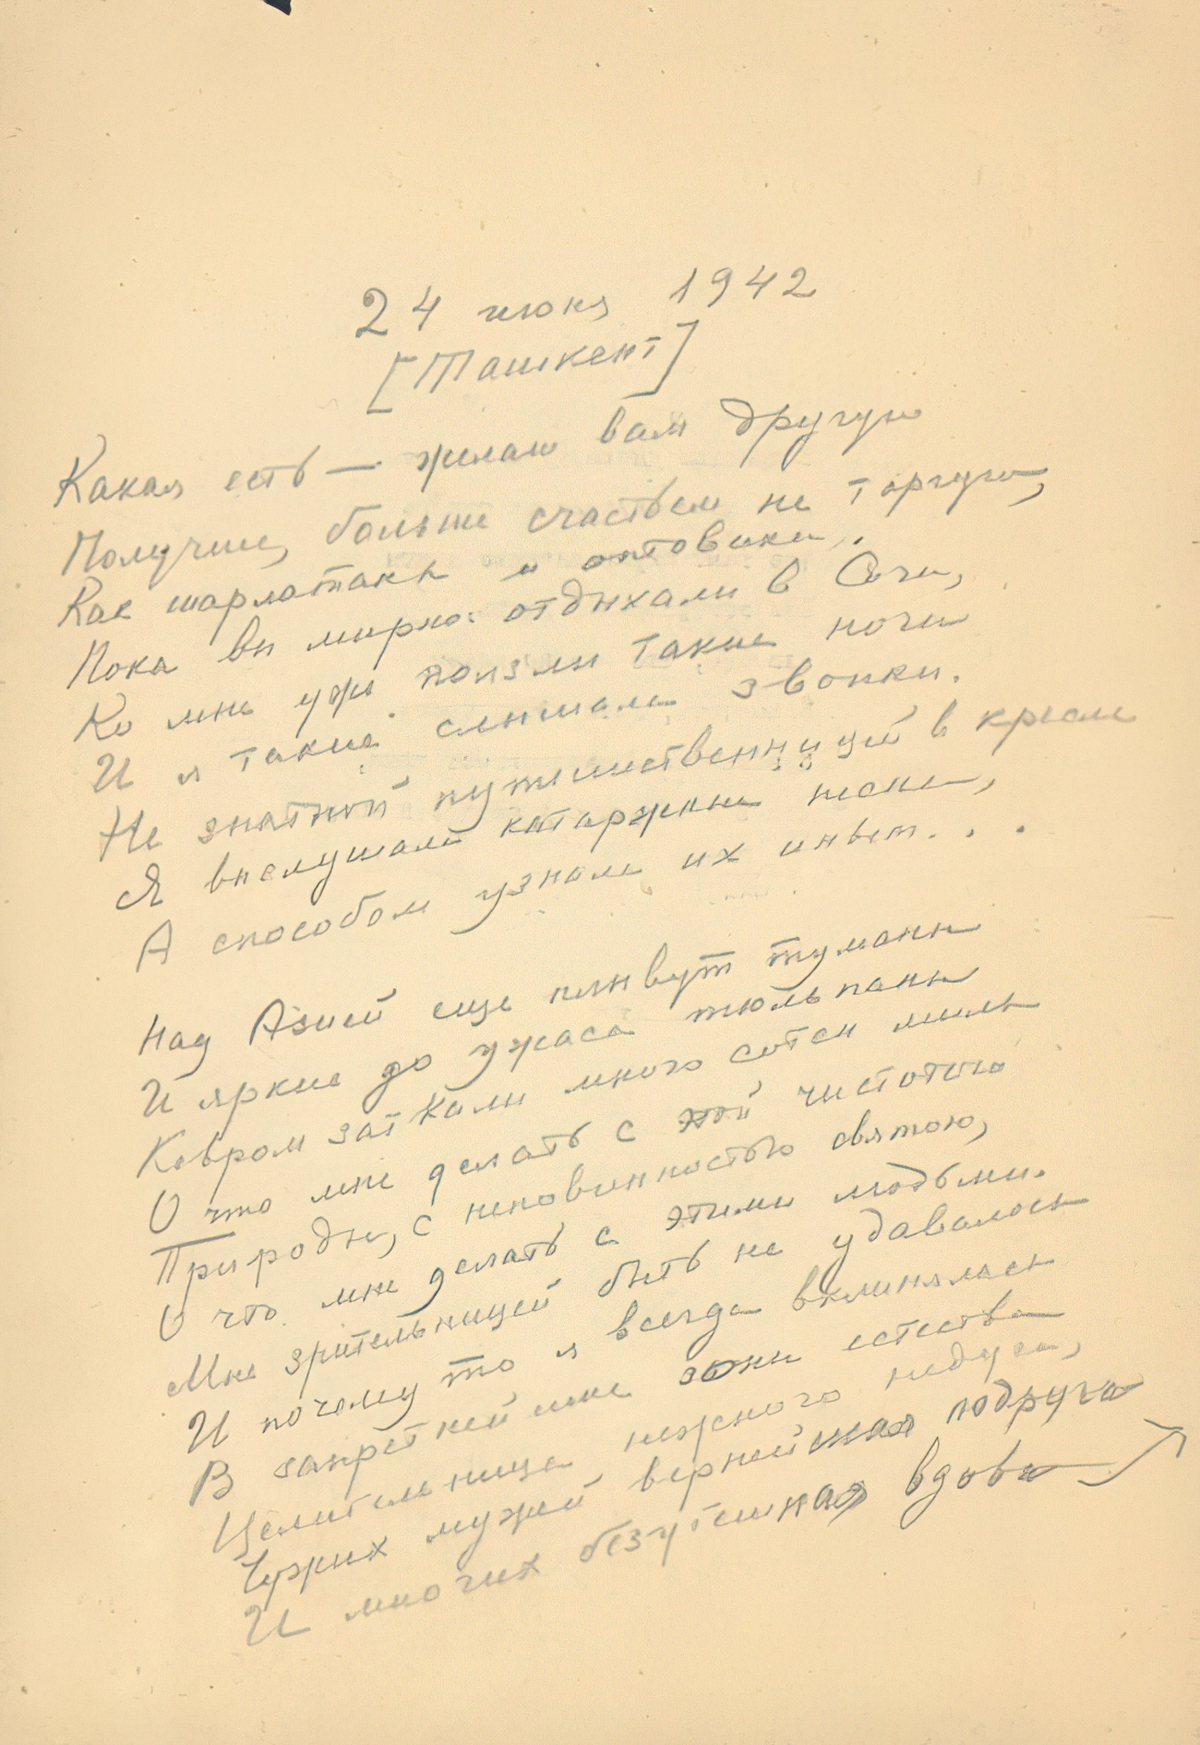 24 июня 1942
[Ташкент]
Какая есть — желаю вам другую
Получше, больше счастьем не торгую,
Как шарлатаны и оптовики.
Пока вы мирно отдыхали в Сочи,
Ко мне уже ползли такие ночи
И я такие слышала звонки.
Не знатной путешественницей в кресле
Я выслушала каторжные песни,
А способом узнала их иным...
Над Азией еще плывут туманы
И яркие до ужаса тюльпаны
Ковром заткали много сотен миль
О что мне делать с этой чистотою
Природы, с неповинностью святою,
О что мне делать с этими людьми.
Мне зрительницей быть не удавалось
И почему то я всегда вклинялась
В запретнейшие зоны естества
Целительница нежного недуга,
Чужих мужей вернейшая подруга
И многих безутешная вдова